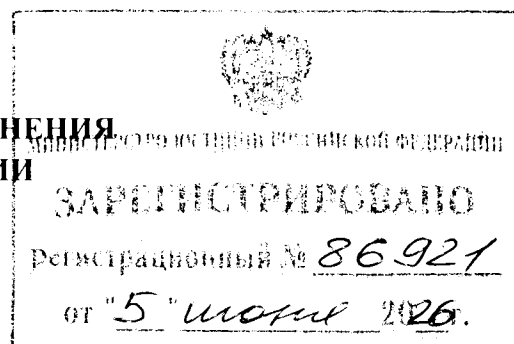 НЕНИЯ
МИНИСТЕРСТВО ЮСТИЦИИ РОССИЙСКОЙ ФЕДЕРАЦИИ
ИИ
ЗАРЕГИСТРИРОВАНО
Регистрационный № 86921
от "5" июня 2026 г.